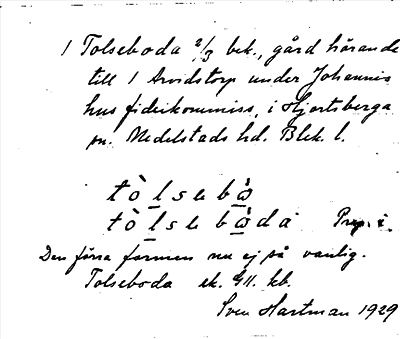 1 Tolseboda 2/3 bek., gård hörande
till 1 Arvidstorp under Johannis
hus fideikommiss, i Hjortsberga
sn. Medelstads hd. Blek. l.
tò l s e b ὼ
tò l s e b ὼ d a Prep. i.
Den förra formen nu ej så vanlig.
Tolseboda ek. Gll. kb.
Sven Hartman 1929